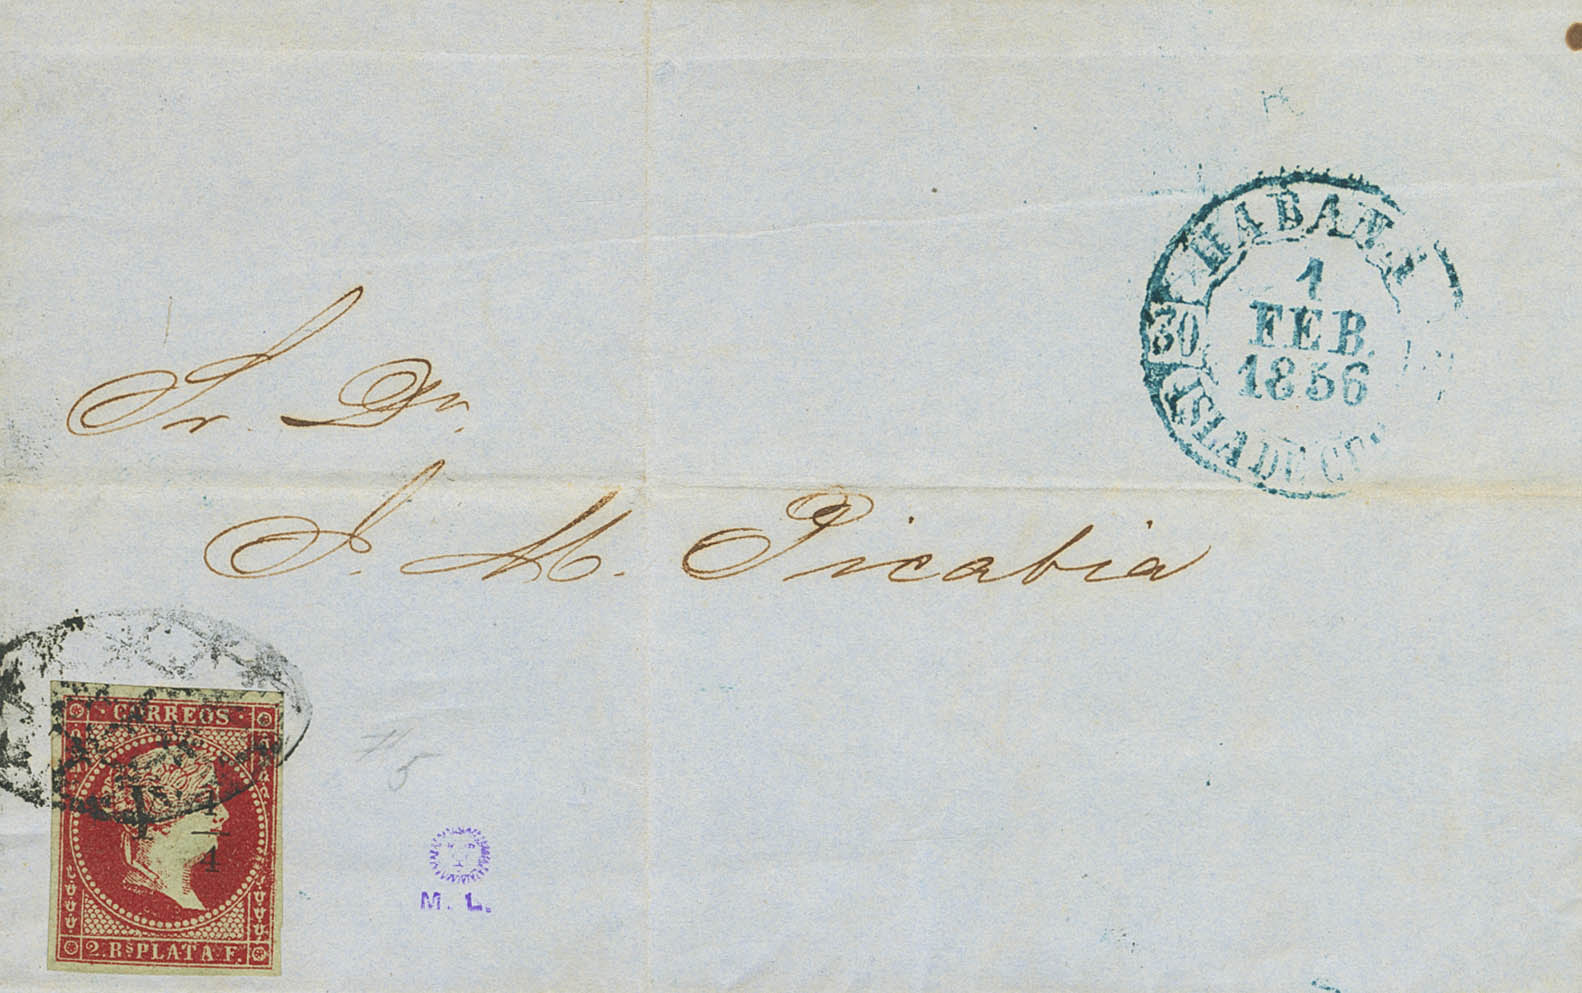 HABANA
1
FEB.
1856
30
ISLA DE
Sr. Dn.
J. M. Picabia
CORREOS
Y 1/4
2. Rs PLATA F.
M. L.